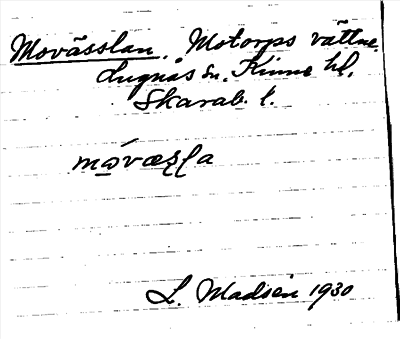 Movässlan. Motorps vattne.
Lugnås sn. Kinne hd.
Skarab. l.
mo̱væsḷa
L. Madsén 1930